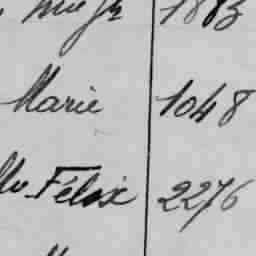 1883
Marie 1048
Félix 2276